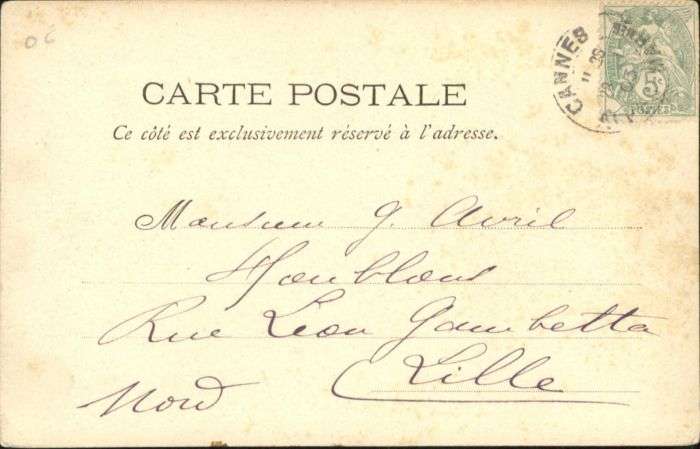 06
CANNES
5c
POSTES
CARTE POSTALE
Ce côté est exclusivement réservé à l'adresse.
Monsieur G. Avril
Houblons
Rue Léon Gambetta
Lille
Nord